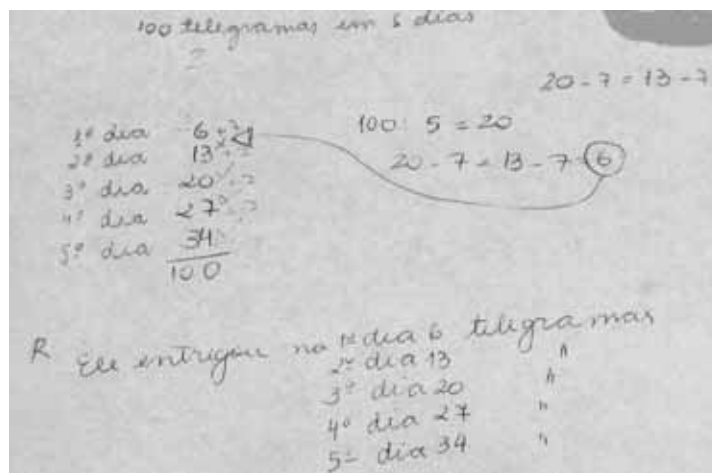 100 telegramas em 5 dias
20 - 7 = 13 - 7
100 : 5 = 20
20 - 7 = 13 - 7 = 6
1º dia 6
2º dia 13
3º dia 20
4º dia 27
5º dia 34
100
R Ele entregou no 1º dia 6 telegramas
2º dia 13 "
3º dia 20 "
4º dia 27 "
5º dia 34 "